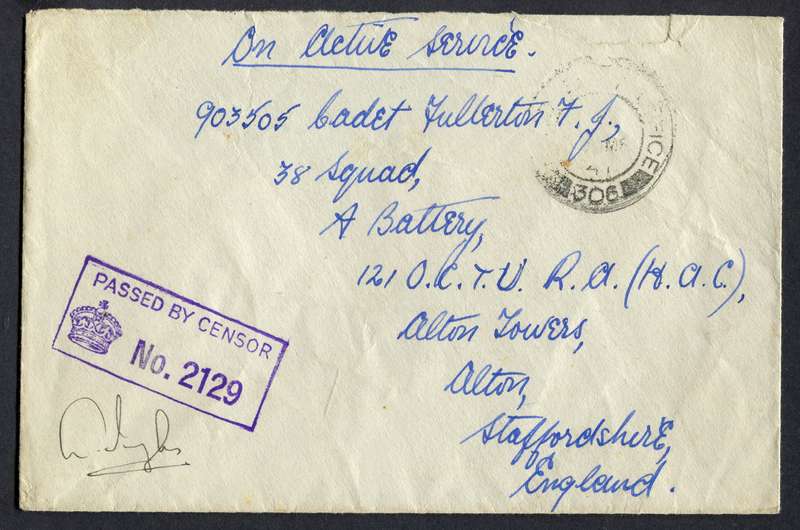 On Active Service.
903505 Cadet Fullerton F. J.,
38 Squad,
A Battery,
121 O.C.T.U. R.A. (H.A.C.),
Alton Towers,
Alton,
Staffordshire,
England.
41
306
PASSED BY CENSOR
No. 2129